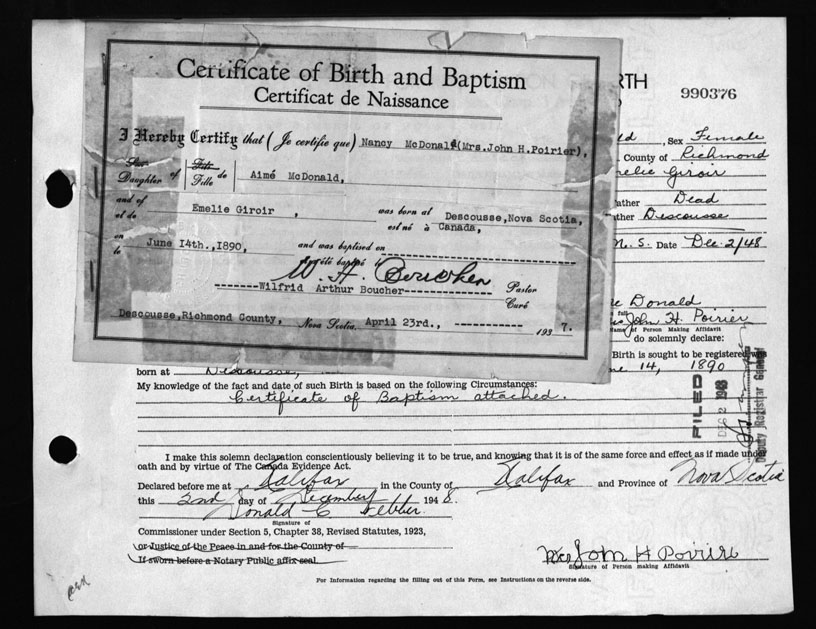 Certificate of Birth and Baptism
Certificat de Naissance
I Hereby Certify that (Je certifie que) Nancy McDonald (Mrs.John H.Poirier),
Son
Daughter of
Fils
Fille de
Aimé McDonald,
and of
et de
Emelie Giroir ,
was born at
est né à
Descousse,Nova Scotia,
Canada,
on
le
June 14th.,1890,
and was baptised on
a été baptisé le
W. A. Boucher
Wilfrid Arthur Boucher
Pastor
Curé
Descousse,Richmond County, Nova Scotia, April 23rd., 1937.
RTH
990376
ld , Sex Female
. County of Richmond
melie Giroir
ather Dead
ather Descousse
N. S. Date Dec. 2/48
Donald
John H. Poirier
ame of Person Making Affidavit
do solemnly declare:
Birth is sought to be registered, was
born at Descousse, ne 14, 1890
My knowledge of the fact and date of such Birth is based on the following Circumstances:
Certificate of Baptism attached.
FILED
DEC 2 1948
Deputy Registrar General
I make this solemn declaration conscientiously believing it to be true, and knowing that it is of the same force and effect as if made under
oath and by virtue of The Canada Evidence Act.
Declared before me at Halifax in the County of Halifax and Province of Nova Scotia
this 2nd day of December 1948.
Donald C Webber
Signature of
Commissioner under Section 5, Chapter 38, Revised Statutes, 1923,
or Justice of the Peace in and for the County of
If sworn before a Notary Public affix seal
Mrs John H Poirire
Signature of Person making Affidavit
For Information regarding the filling out of this Form, see Instructions on the reverse side.